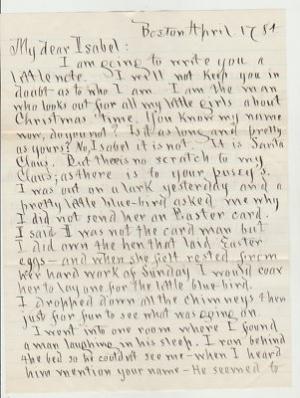 Boston April 17 84
My dear Isabel:
I am going to write you a
little note. I will not keep you in
doubt as to who I am. I am the man
who looks out for all my little girls about
Christmas time. You know my name
now, do you not? Is it as long and pretty
as yours? No, Isabel it is not. It is Santa
Claus. But there is no scratch to my
Claus; as there is to your pusey's.
I was out on a lark yesterday and a
pretty little blue-bird asked me why
I did not send her an Easter card.
I said I was not the card man but
I did own the hen that laid Easter
eggs - and when she felt rested from
her hard work of Sunday I would coax
her to lay one for the little blue-bird.
I dropped down all the chimneys then
just for fun to see what was going on.
I went into one room where I found
a man laughing in his sleep. I ran behind
the bed so he couldn't see me - when I heard
him mention your name - He seemed to